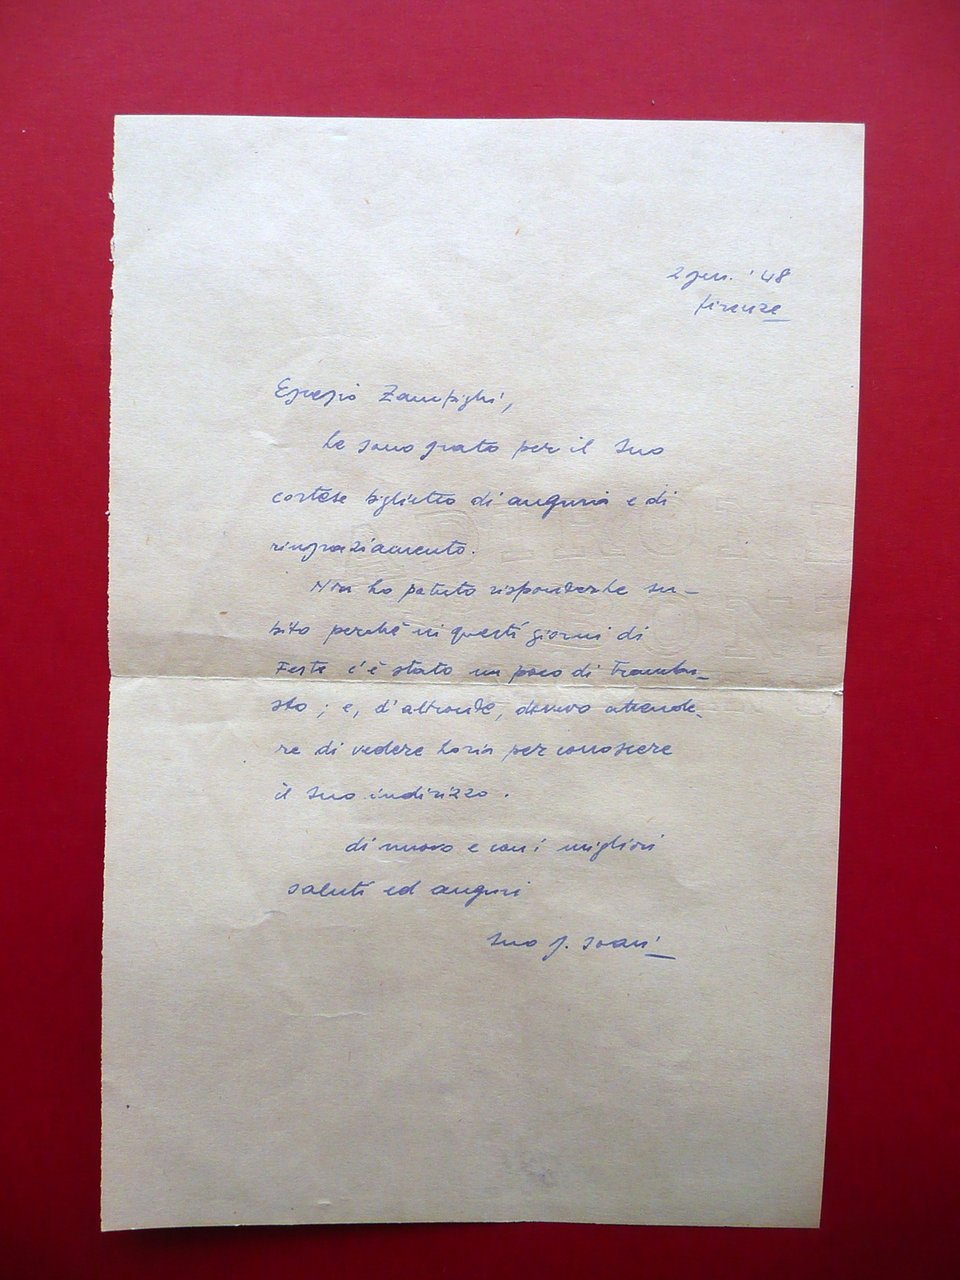 2 gen. '48
Firenze
Egregio Zampighi,
Le sono grato per il Suo
cortese biglietto di augurio e di
ringraziamento.
Non ho potuto risponderle su-
bito perché in questi giorni di
Feste c'è stato un poco di trambu-
sto; e, d'altronde, dovevo attende-
re di vedere Loria per conoscere
il Suo indirizzo.
di nuovo e con i migliori
saluti ed auguri
Suo